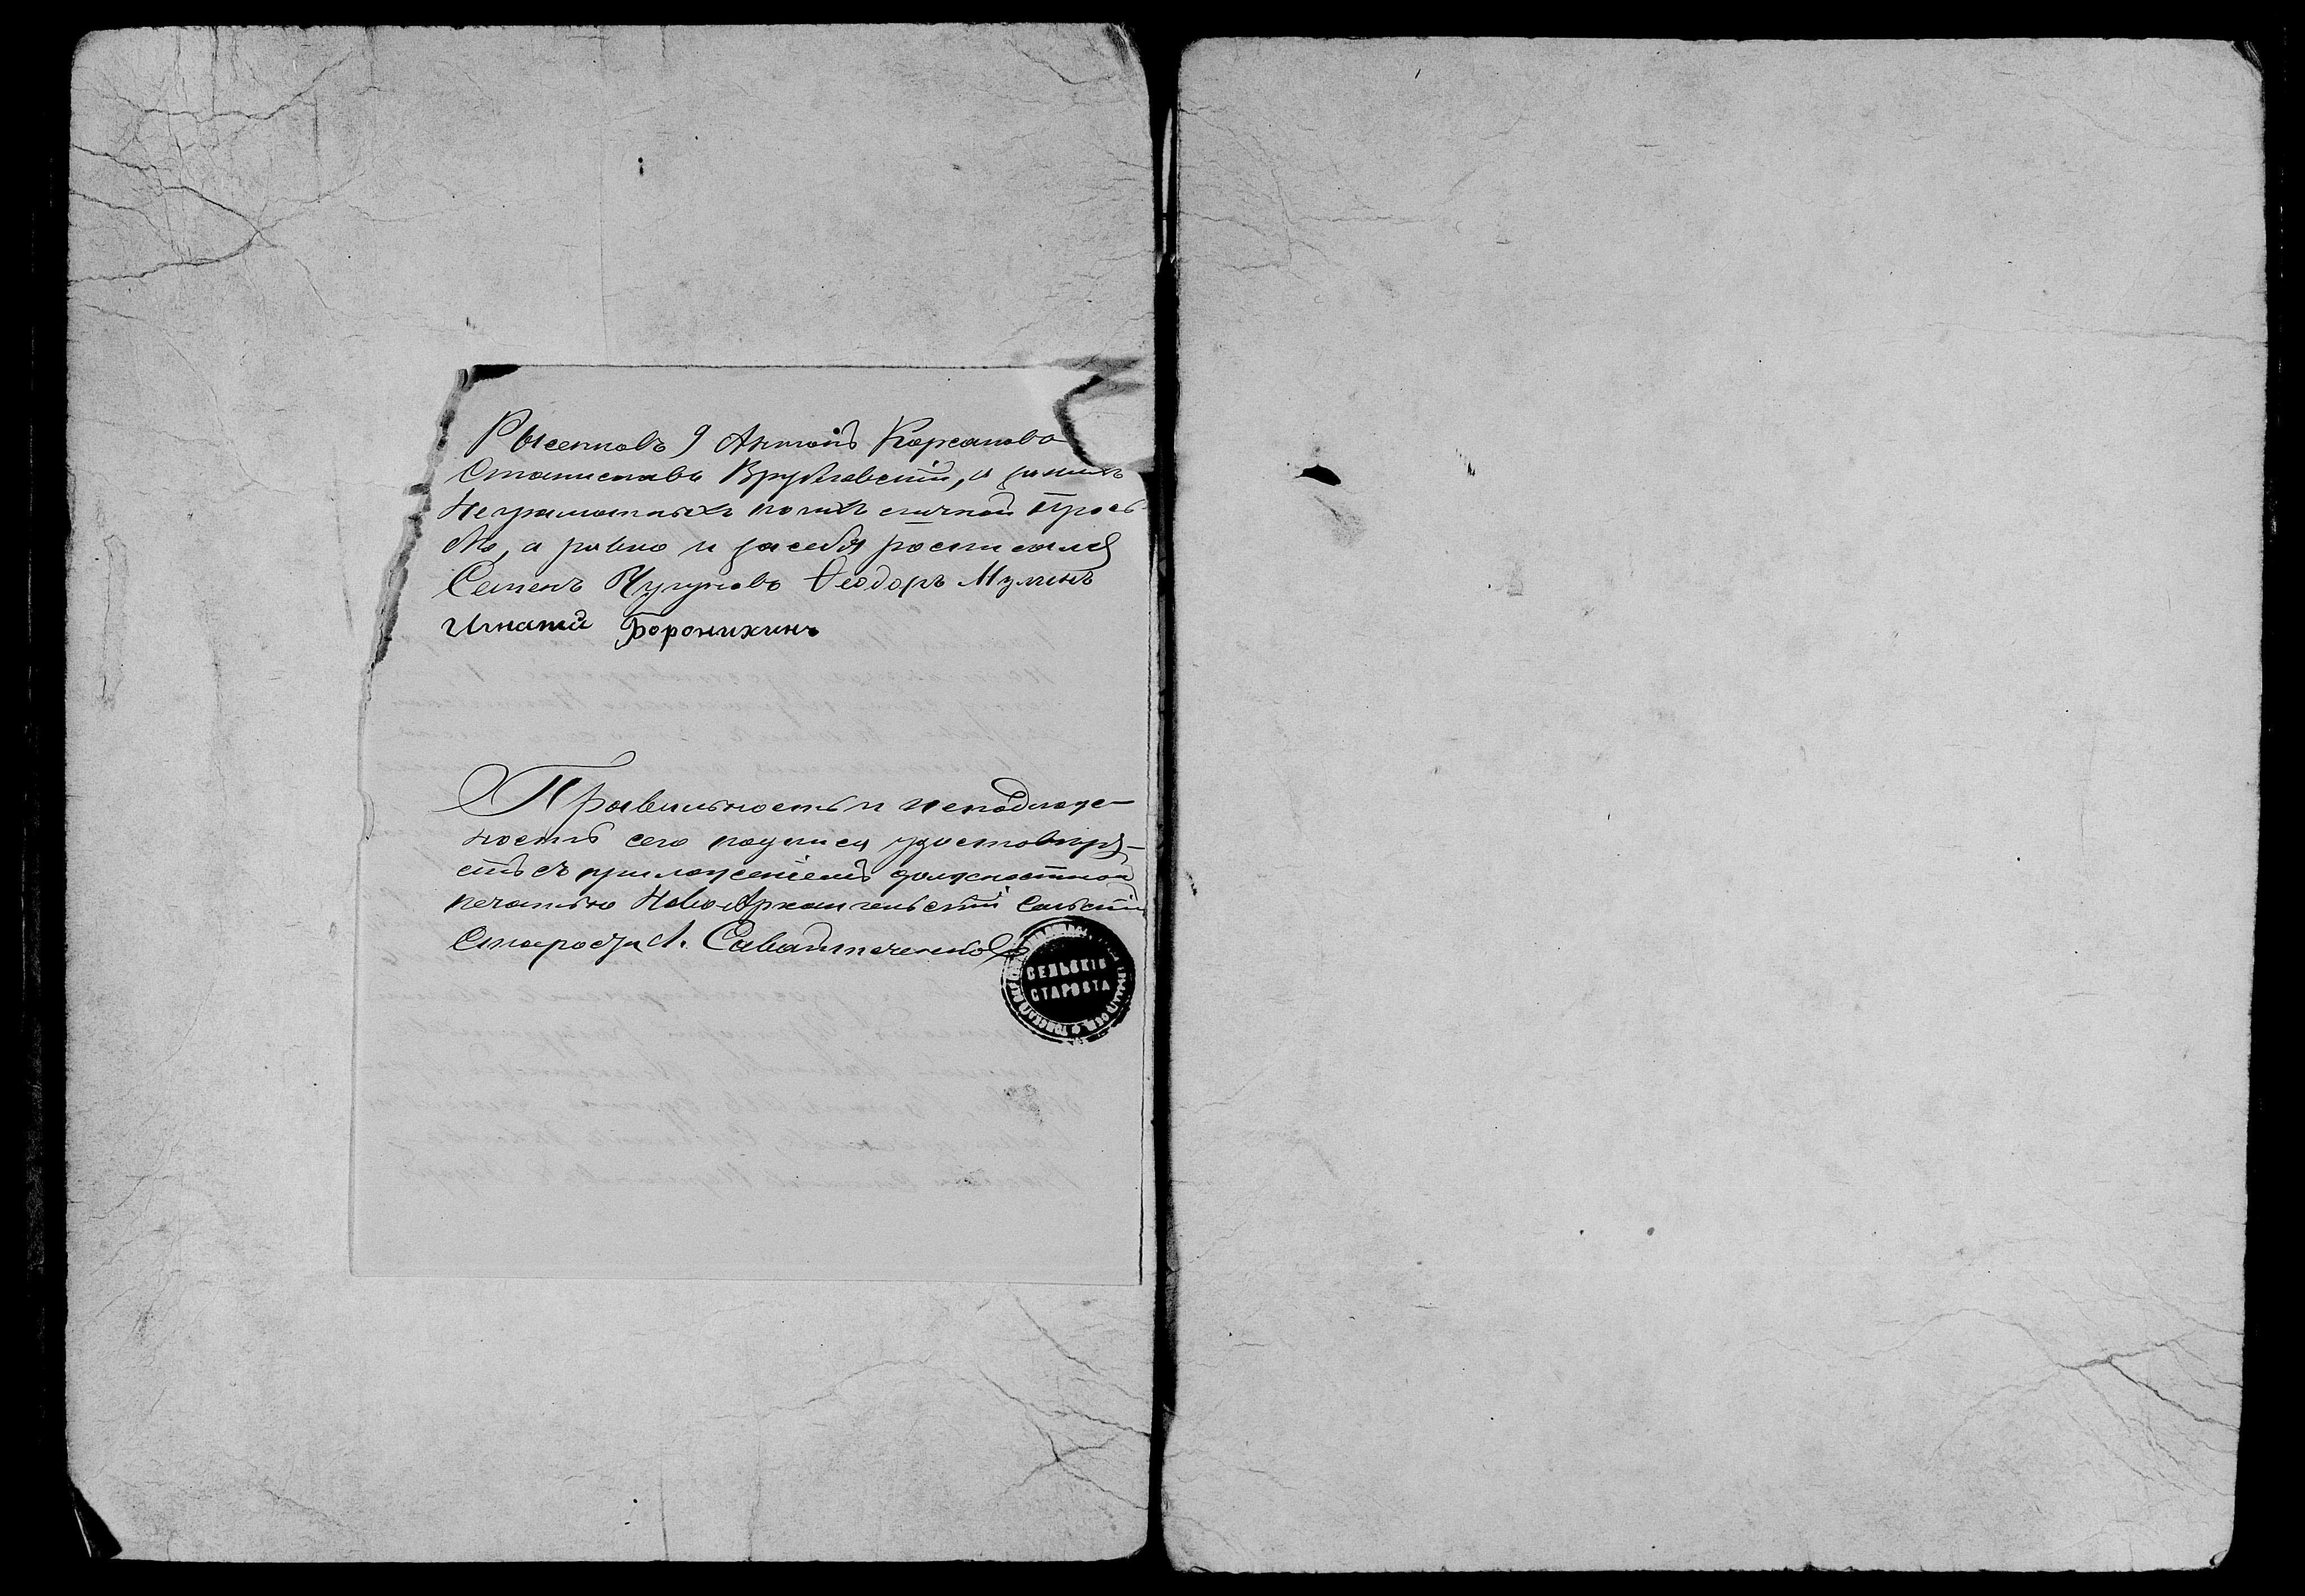 Рысенковъ, Антонъ Корсаково
Станиславъ Врублевскій, а за нихъ
Неграмотныхъ по ихъ личной прось
бѣ, а равно и за себя росписался
Семенъ Чугуновъ Ѳеодоръ Мулинъ
Игнатій Боронихинъ
Правильность и неподлож-
ность сего подписа удостовѣря-
етъ съ приложеніемъ должностной
печатью Ново-Архангельскій Сельскій
Староста А. Савайтеченко
СЕЛЬСКІЙ
СТАРОСТА